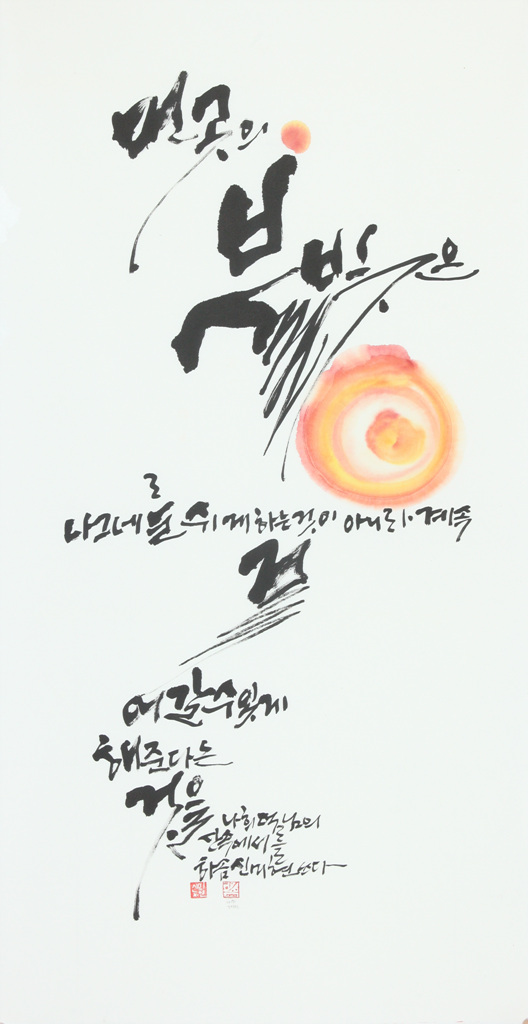 먼 곳의
불
빛은
나그네를 쉬게 하는 것이 아니라 계속
걸
어갈 수 있게
해준다는
것을
나희덕님의
산속에서를
신미현 쓰다